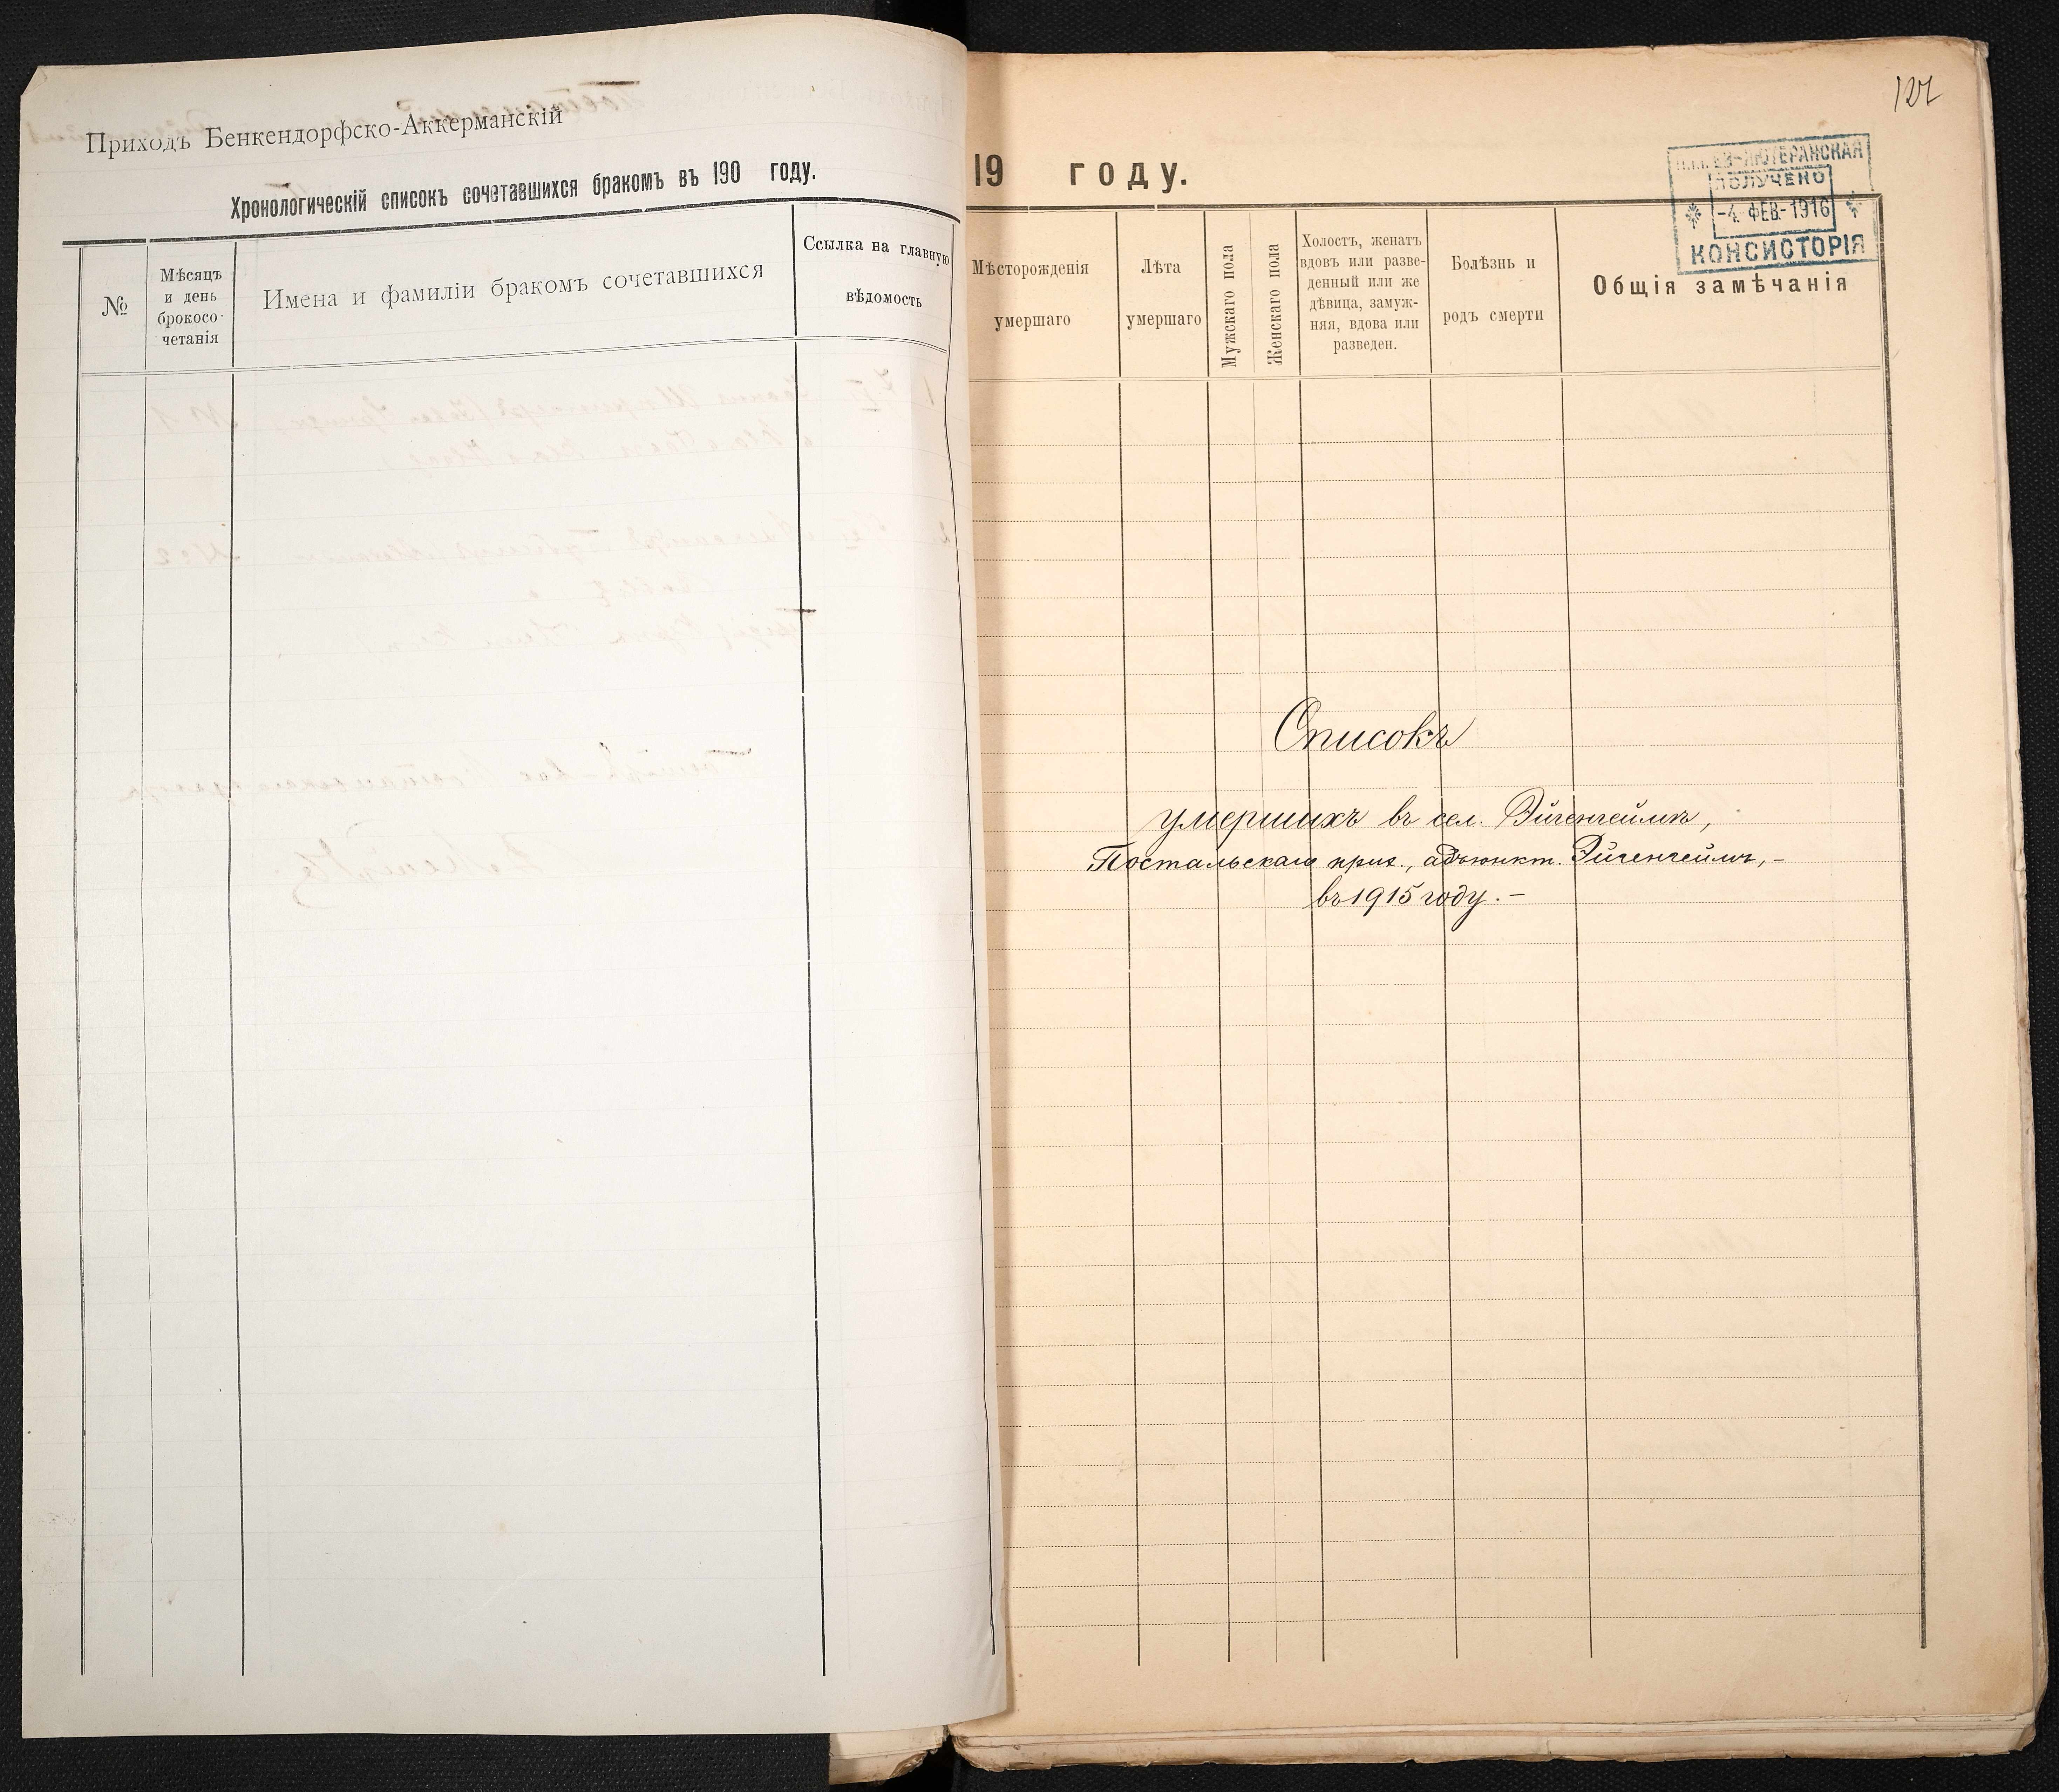 Приходъ Бенкендорфско-Аккерманскій
Хронологическій списокъ сочетавшихся бракомъ въ 190 году.
№
Мѣсяцъ
и день
брокосо-
четанія
Имена и фамиліи бракомъ сочетавшихся
Ссылка на главную
вѣдомость
121
ЕВ-ЛЮТЕРАНСКАЯ
ПОЛУЧЕНО
-4. ФЕВ.-1916
КОНСИСТОРІЯ
19 году.
Мѣсторожденія
умершаго
Лѣта
умершаго
Мужскаго пола
Женскаго пола
Холостъ, женатъ
вдовъ или разве-
денный или же
дѣвица, замуж-
няя, вдова или
разведен.
Болѣзнь и
родъ смерти
Общія замѣчанія
Списокъ
умершихъ въ сел. Эйгенгеймѣ,
Постальскаго прих., адъюнкт. Эйгенгеймъ, -
въ 1915 году. -